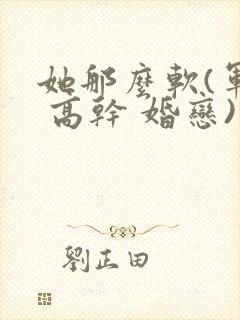 她那麼軟(軍
高幹 婚戀)
劉正田